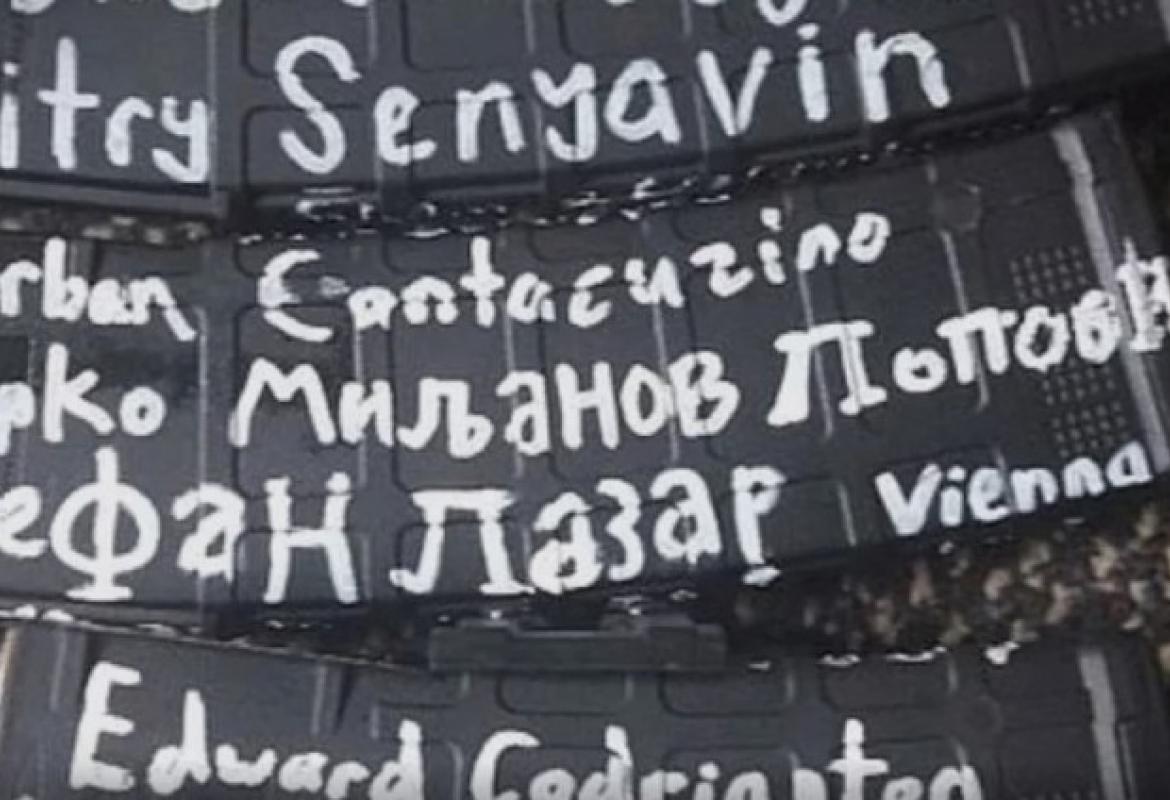 itry Senyavin
rban Cantacuzino
рко Миљанов Попови
ефан Лазар Vienna
Edward Codrington